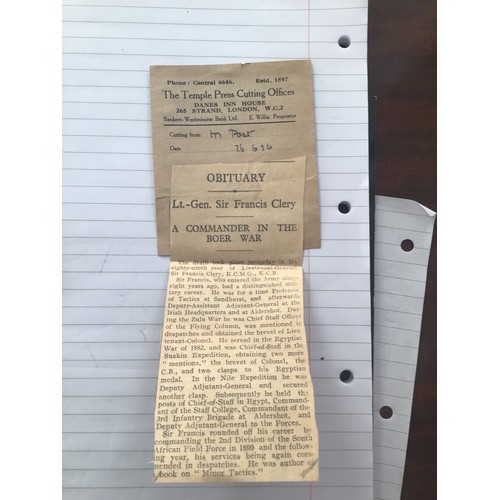 Phone: Central 6646. Estd. 1897
The Temple Press Cutting Offices
DANES INN HOUSE
265 STRAND, LONDON, W.C.2
Bankers-Westminster Bank Ltd. E. Willis, Proprietor
Cutting from M Post
Date 26 6 26
OBITUARY
Lt.-Gen. Sir Francis Clery
A COMMANDER IN THE
BOER WAR
The death took place yesterday in his
eighty-ninth year of Lieutenant-General
Sir Francis Clery, K.C.M.G., K.C.B.
Sir Francis, who entered the Army sixty-
eight years ago, had a distinguished mili-
tary career. He was for a time Professor
of Tactics at Sandhurst, and afterwards
Deputy-Assistant Adjutant-General at the
Irish Headquarters and at Aldershot. Dur-
ing the Zulu War he was Chief Staff Officer
of the Flying Column, was mentioned in
despatches and obtained the brevet of Lieu-
tenant-Colonel. He served in the Egyptian
War of 1882, and was Chief-of-Staff in the
Suakin Expedition, obtaining two more
"mentions," the brevet of Colonel, the
C.B., and two clasps to his Egyptian
medal. In the Nile Expedition he was
Deputy Adjutant-General and secured
another clasp. Subsequently he held the
posts of Chief-of-Staff in Egypt, Command-
ant of the Staff College, Commandant of the
3rd Infantry Brigade at Aldershot, and
Deputy Adjutant-General to the Forces.
Sir Francis rounded off his career by
commanding the 2nd Division of the South
African Field Force in 1899 and the follow-
ing year, his services being again com-
mended in despatches. He was author of
book on "Minor Tactics."